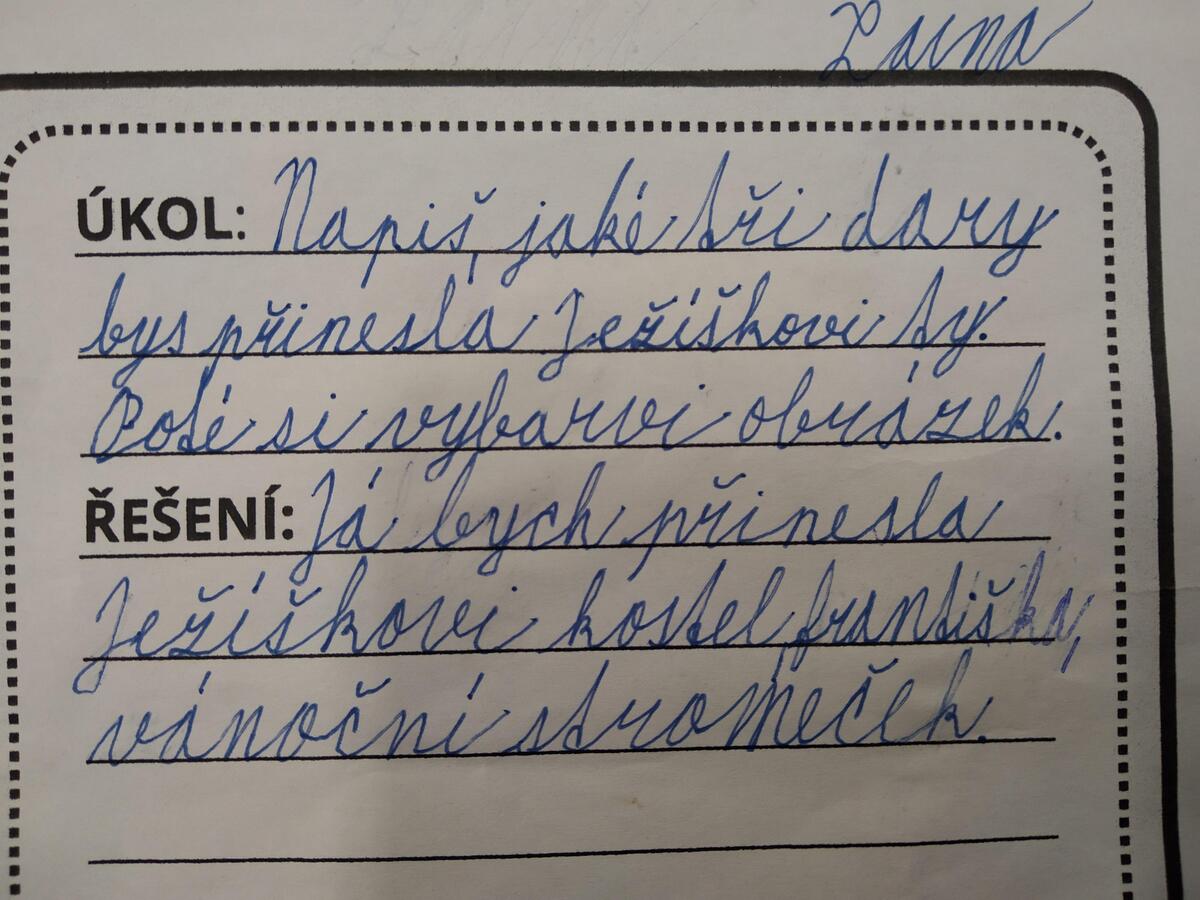 ÚKOL: Napiš, jaké tři dary
bys přinesla Ježíškovi ty.
Poté si vybarvi obrázek.
ŘEŠENÍ: Já bych přinesla
Ježíškovi kostel, františka,
vánoční stromeček.